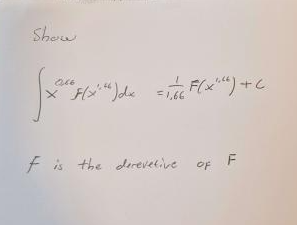 Show
∫ x^0.66 f(x^1,66) dx = 1/1,66 F(x^1,66) + C
f is the derevetive of F